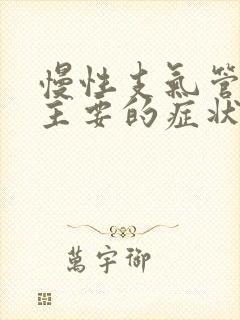 慢性支氣管
主要的症状
萬宇御